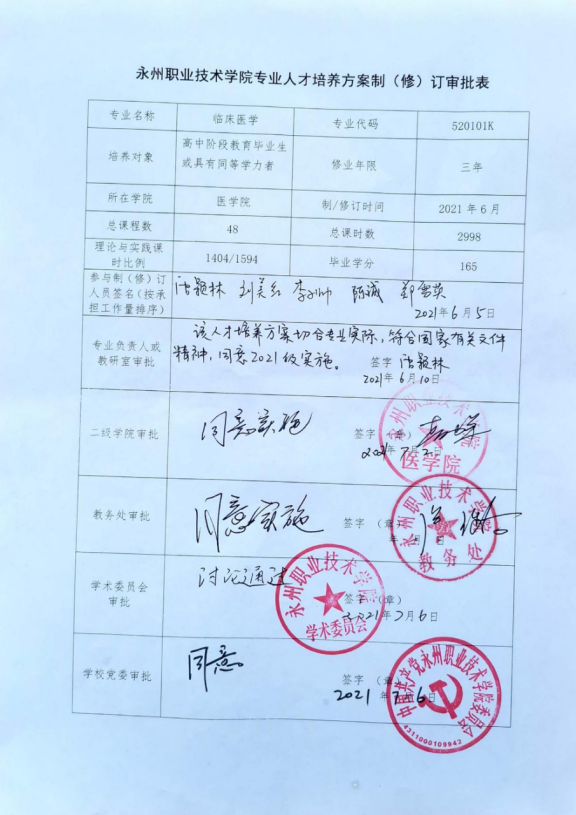 永州职业技术学院专业人才培养方案制（修）订审批表
专业名称 临床医学 专业代码 520101K
培养对象 高中阶段教育毕业生 修业年限 三年
或具有同等学力者
所在学院 医学院 制/修订时间 2021年6月
总课程数 48 总课时数 2998
理论与实践课 1404/1594 毕业学分 165
时比例
参与制（修）订
人员签名（按承
担工作量排序） 陈诚 郑雪英
2021年6月5日
专业负责人或
教研室审批
该人才培养方案切合专业实际，符合国家有关文件
精神，同意2021级实施。 签字
2021年6月10日
二级学院审批 同意实施 签字（章）
2021年7月2日
永州职业技术学院
医学院
教务处审批 同意实施 签字（章）
年 月 日
永州职业技术学院
教务处
学术委员会
审批
讨论通过 签字（章）
2021年7月6日
永州职业技术学院
学术委员会
学校党委审批 同意 签字（章）
2021 7月6日
中国共产党永州职业技术学院委员会
4311000109943